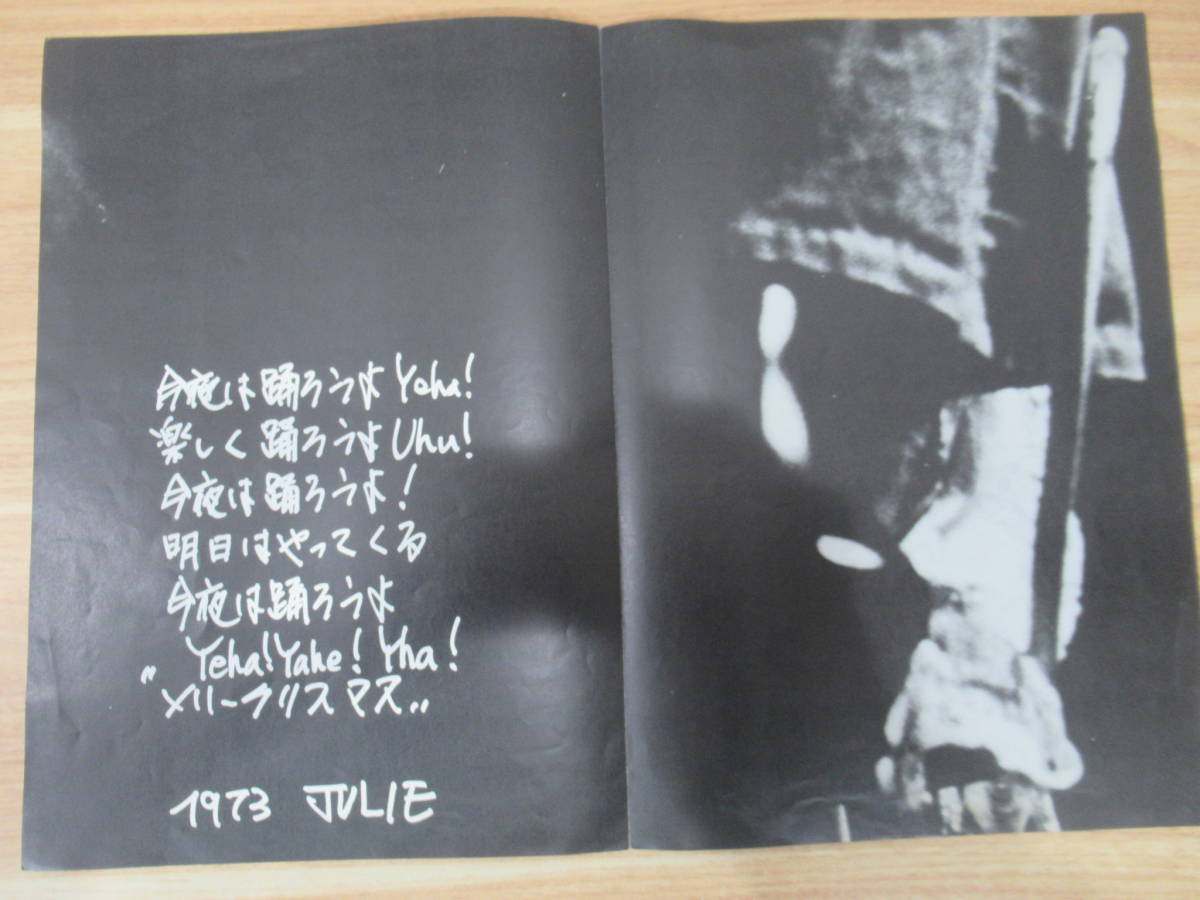 今夜は踊ろうよYeha!
楽しく踊ろうよUhu!
今夜は踊ろうよ!
明日はやってくる
今夜は踊ろうよ
Yeha!Yahe!Yha!
〃メリークリスマス〃
1973 JULIE